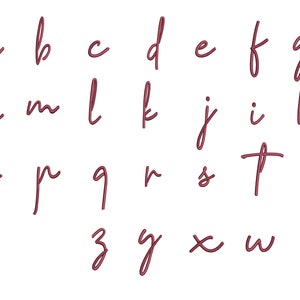 b c d e f g
m l k j i
p q r s t
z y x w